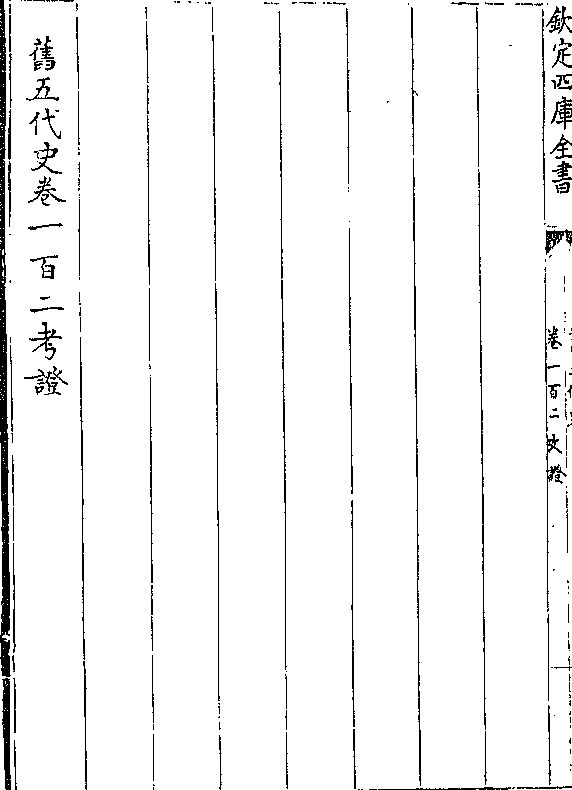 欽定四庫全書
卷一百二考證
舊五代史卷一百二考證